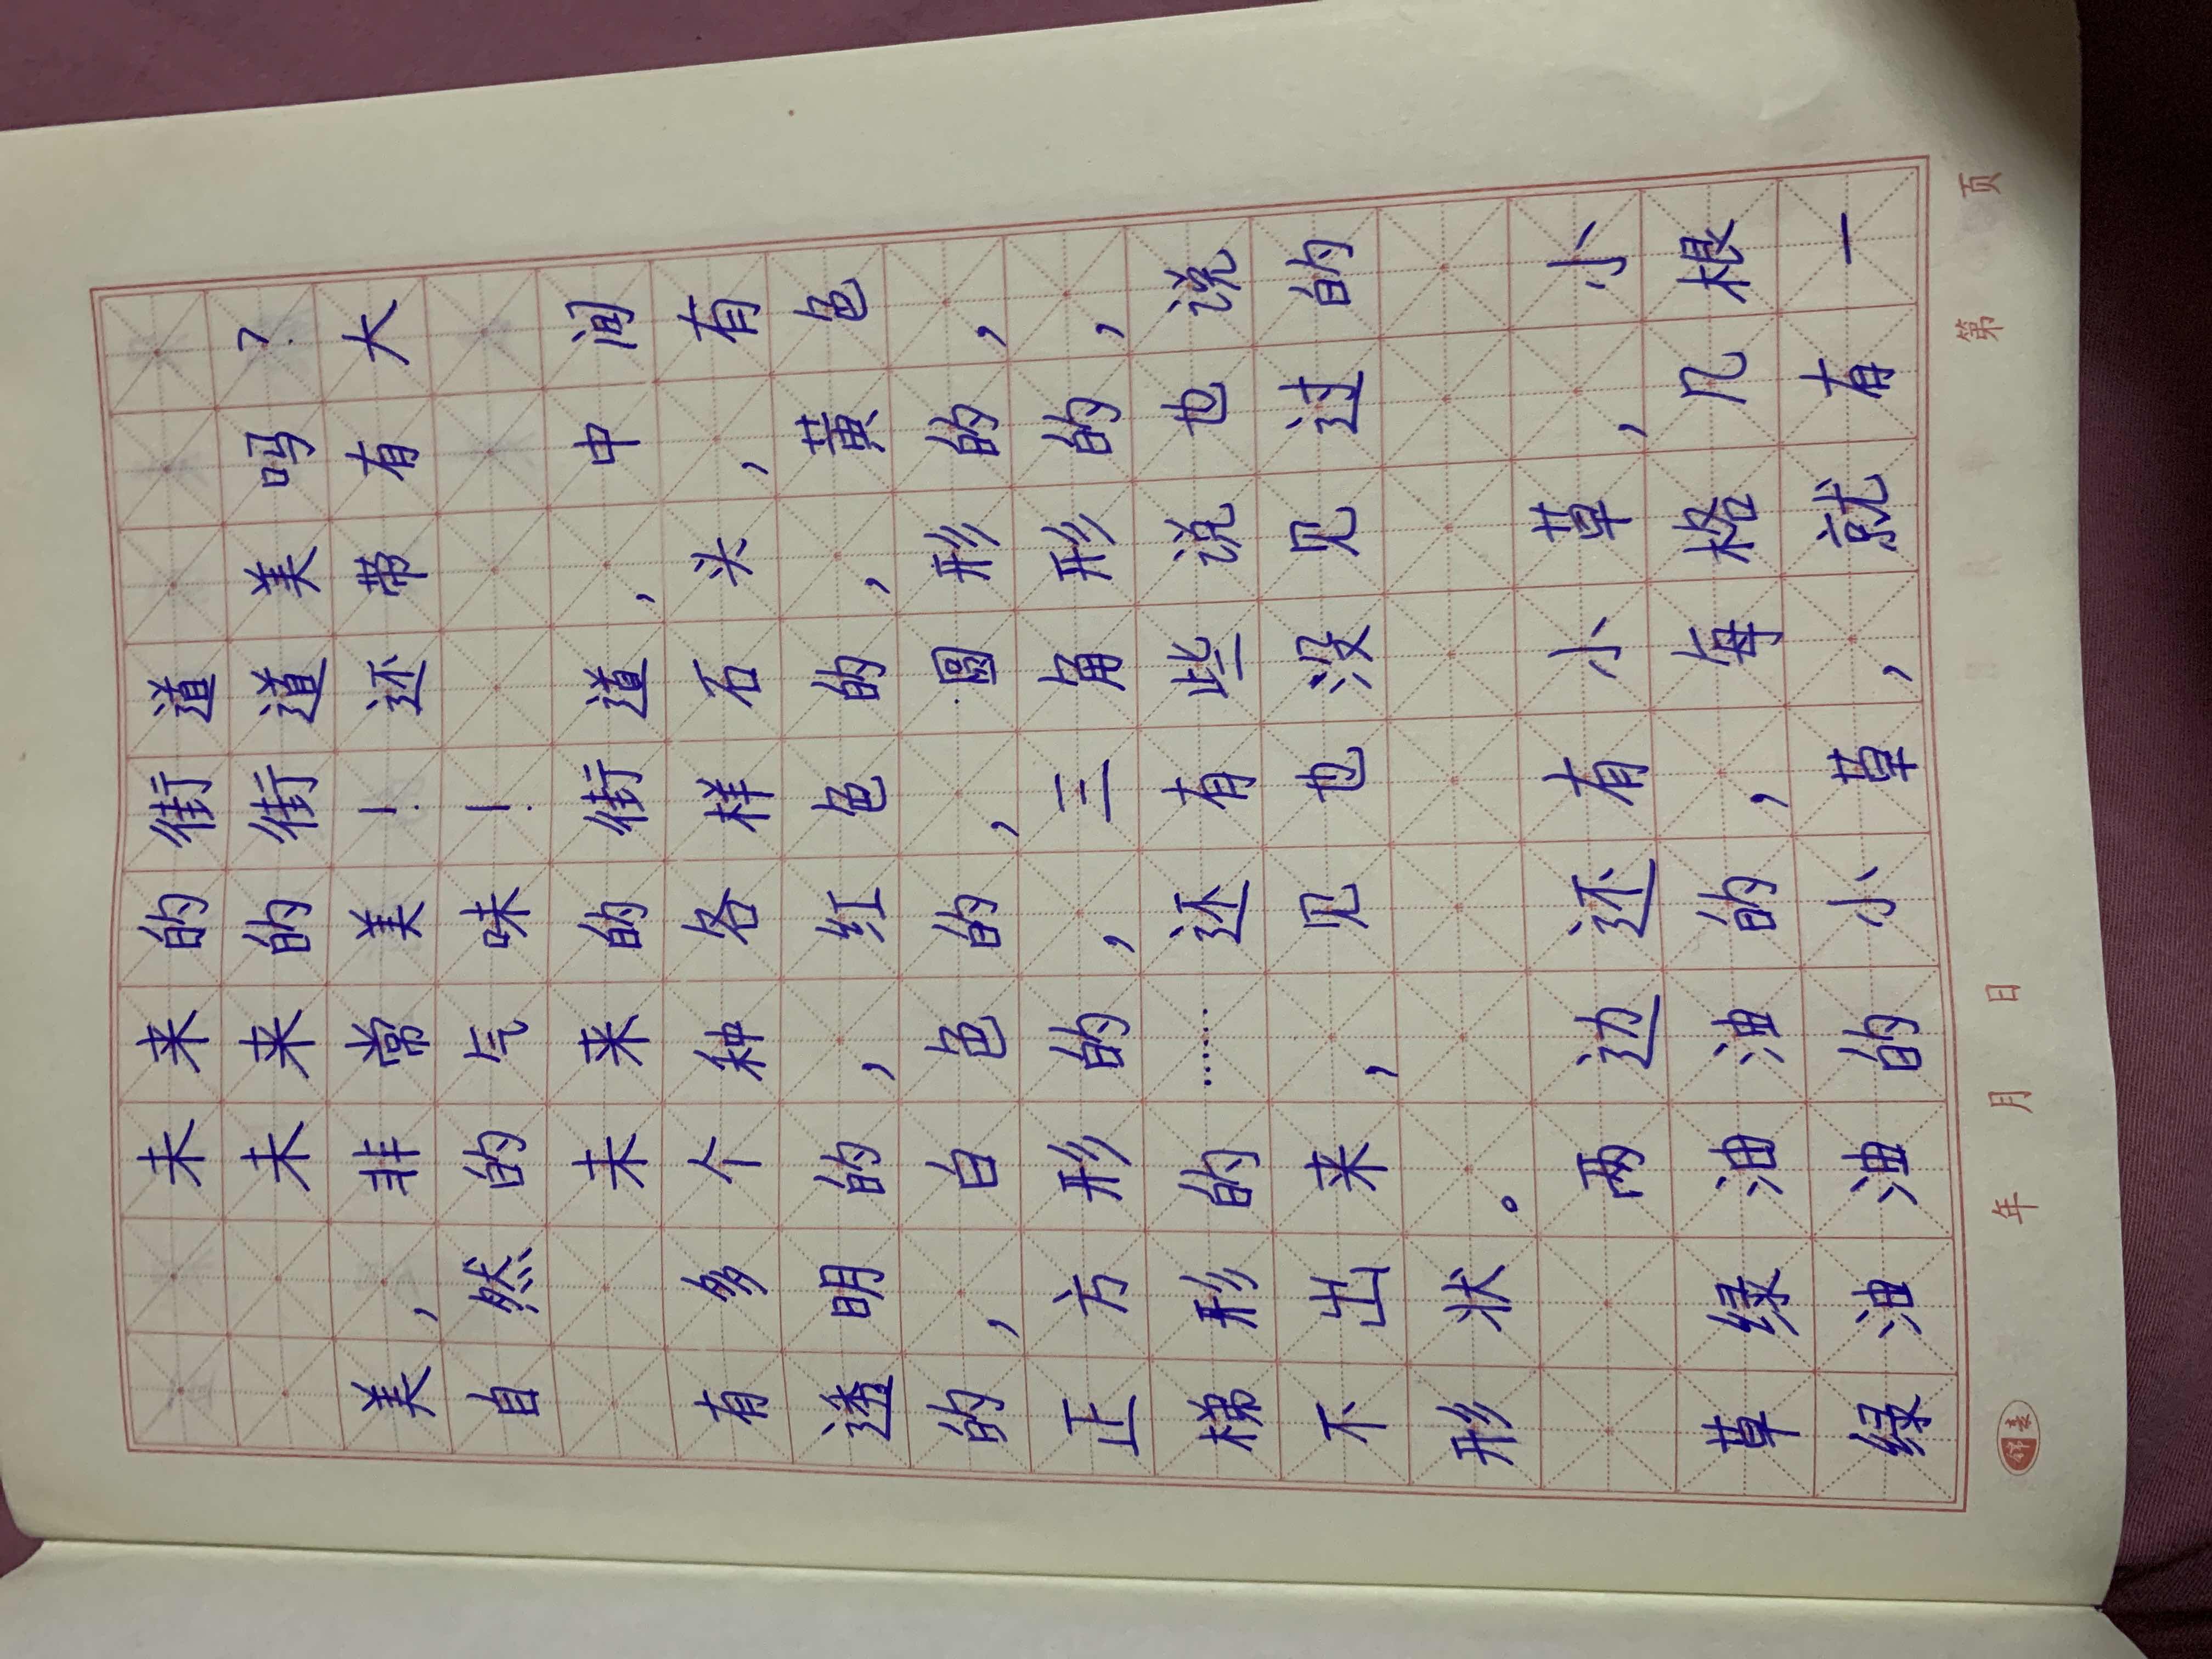 未来的街道
未来的街道美吗？
美，非常美！还带有大
自然的气味！
未来的街道，中间
有多个种各样石头，有
透明的，红色的，黄色
的，白色的，圆形的，
正方形的，三角形的，
梯形的……还有些说也说
不出来，见也没见过的
形状。
两边还有小草，小
草绿油油的，每格几根
绿油油的小草，就有一
年 月 日 第 页